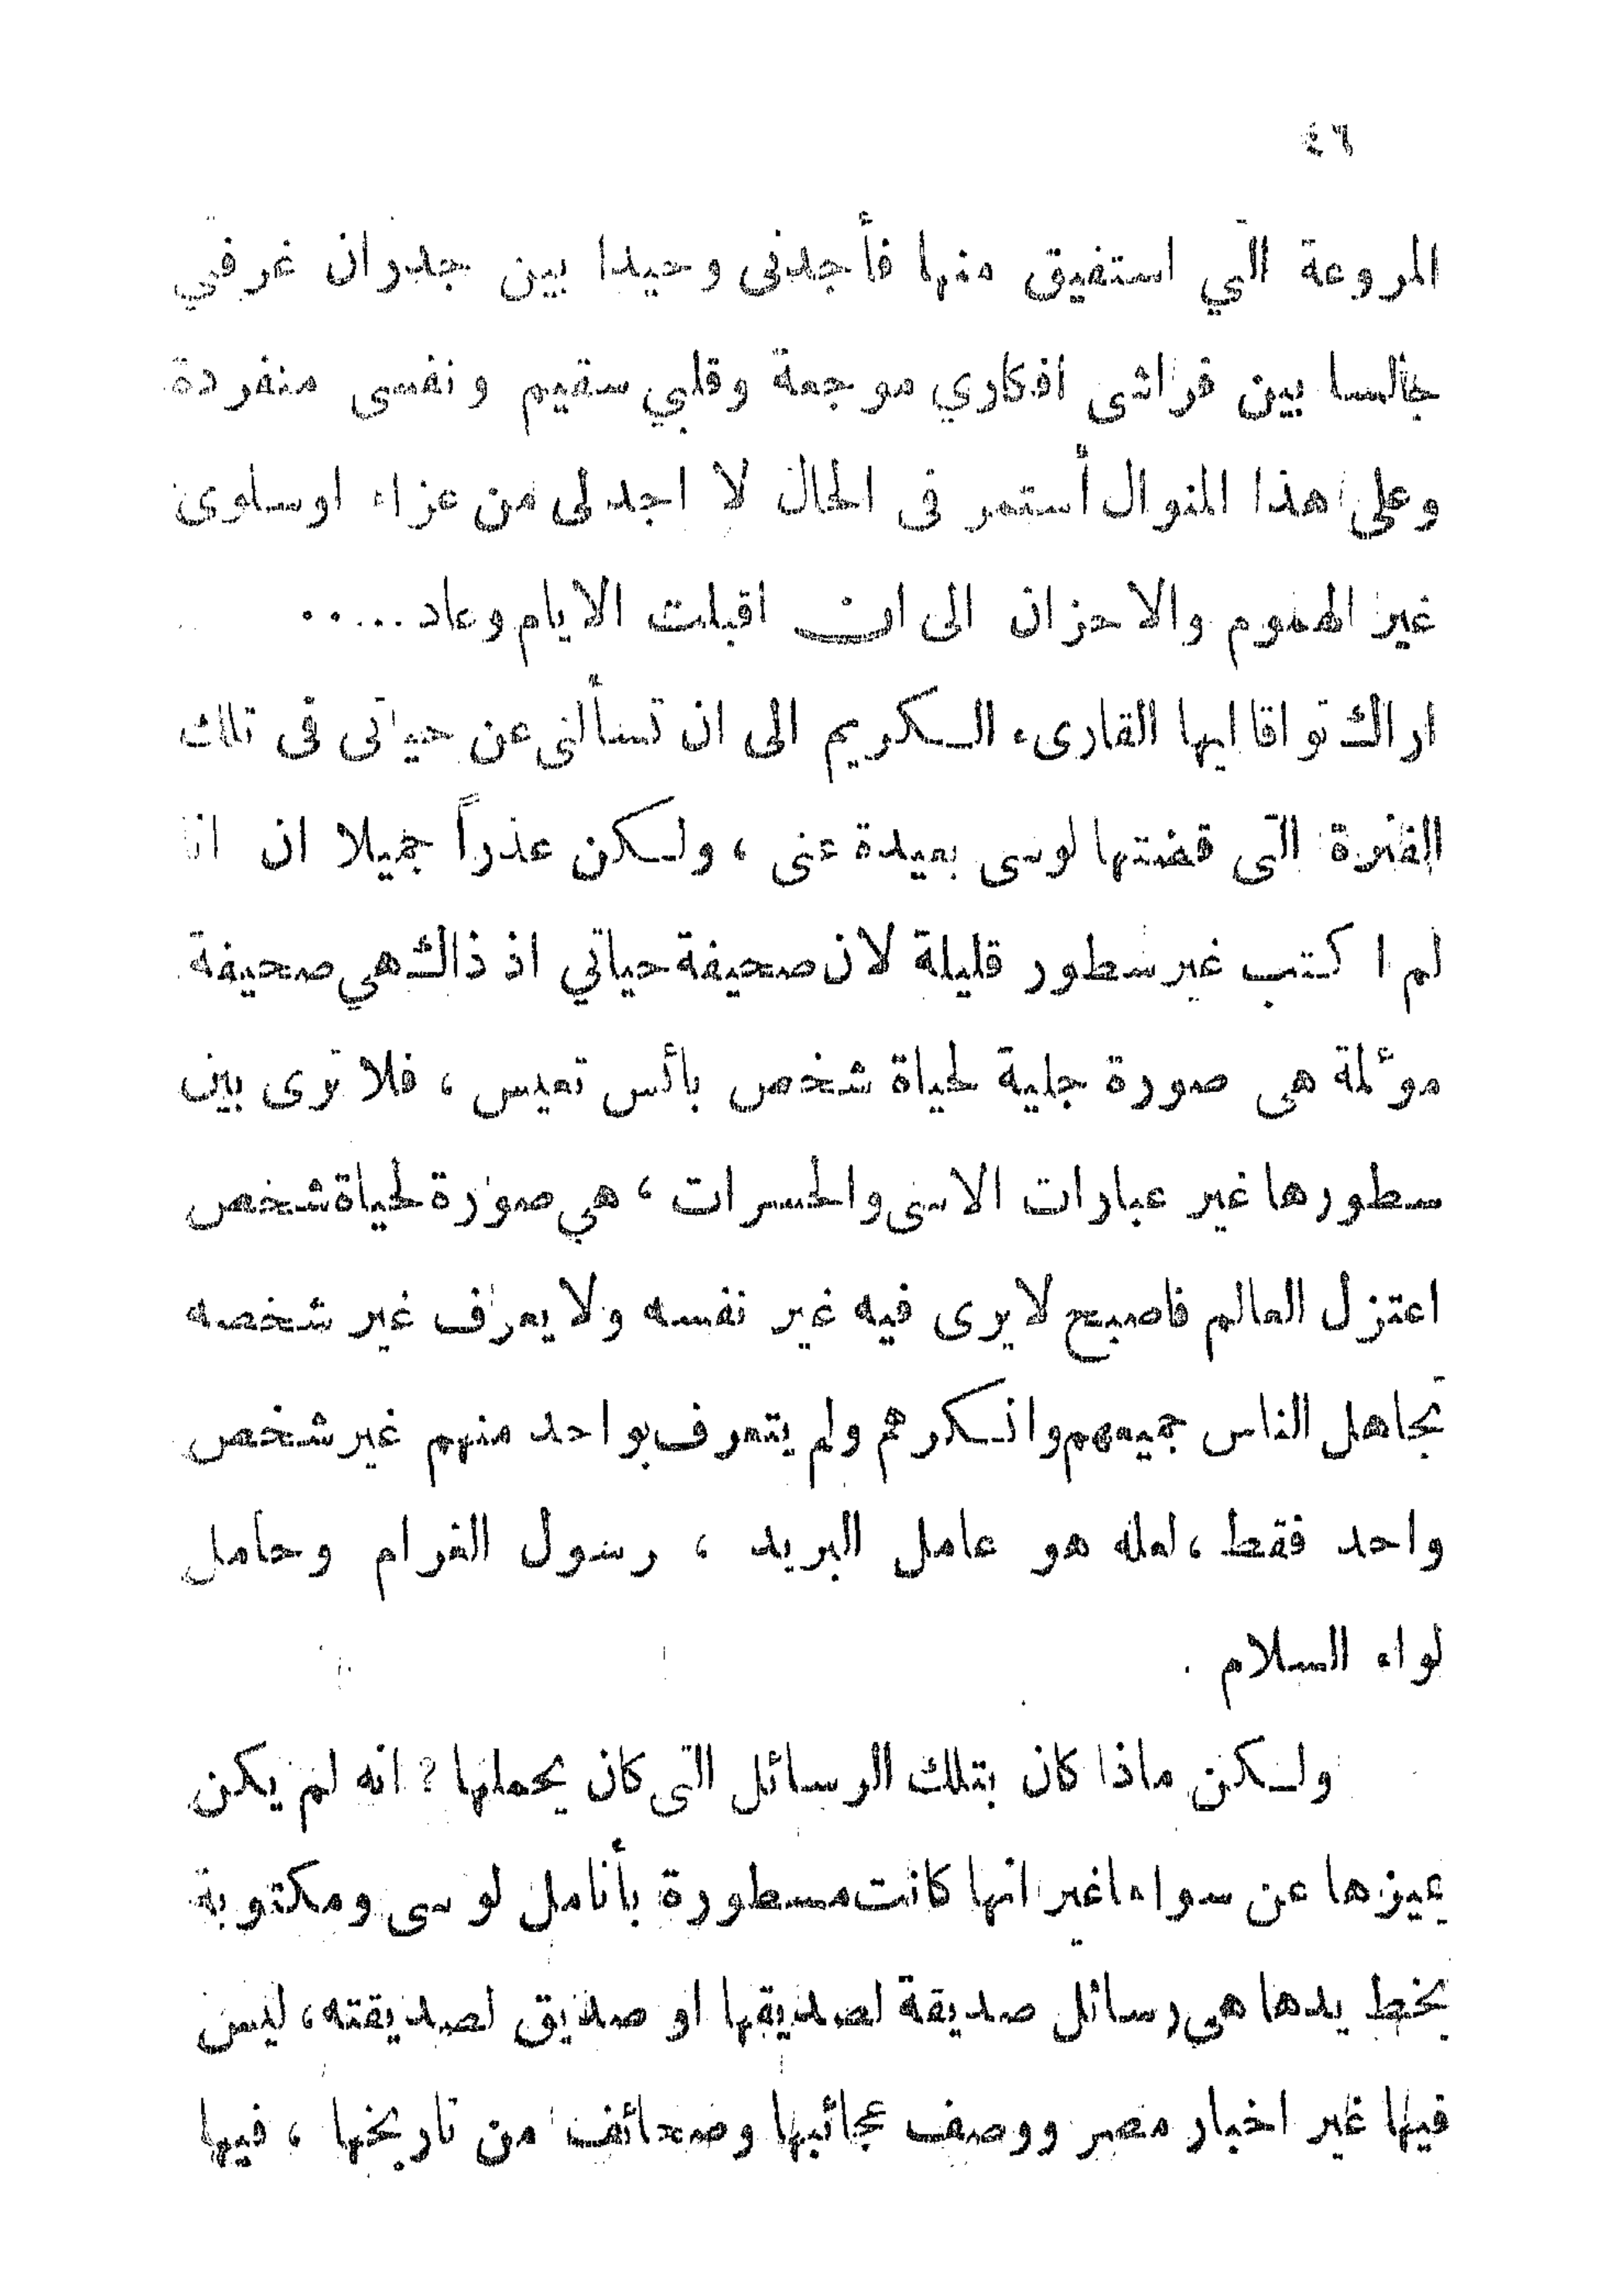 ٤٦
المروعة التي استفيق منها فأجدنى وحيدا بين جدران غرفتي
جالسا بين فراشى افكاري موجعة وقلبي سقيم ونفسى منفردة
وعلى هذا المنوال أستمر فى الحال لا اجد لى من عزاء اوسلوى
غير الهموم والاحزان الى ان اقبلت الايام وعاد .....
اراك تواقا ايها القارىء الكريم الى ان تسألنى عن حياتى فى تلك
الفترة التى قضتها لوسى بعيدة عنى ، ولكن عذراً جميلا ان انا
لم اكتب غير سطور قليلة لان صحيفة حياتي اذ ذاك هي صحيفة
مؤلمة هى صورة جلية لحياة شخص بائس تعيس ، فلا ترى بين
سطورها غير عبارات الاسى والحسرات ، هي صورة لحياة شخص
اعتزل العالم فاصبح لا يرى فيه غير نفسه ولا يعرف غير شخصه
تجاهل الناس جميعهم وانكرهم ولم يتعرف بواحد منهم غير شخص
واحد فقط ، لعله هو عامل البريد ، رسول الغرام وحامل
لواء السلام .
ولكن ماذا كان بتلك الرسائل التى كان يحملها ? انه لم يكن
يميزها عن سواها غير انها كانت مسطورة بأنامل لوسى ومكتوبة
بخط يدها هى رسائل صديقة لصديقها او صديق لصديقته ، ليس
فيها غير اخبار مصر ووصف عجائبها وصحائف من تاريخها ، فيها